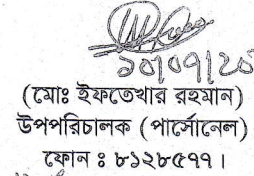 ১০/০৭/২০
(মোঃ ইফতেখার রহমান)
উপপরিচালক (পার্সোনেল)
ফোন ঃ ৮১২৮৫৭৭।